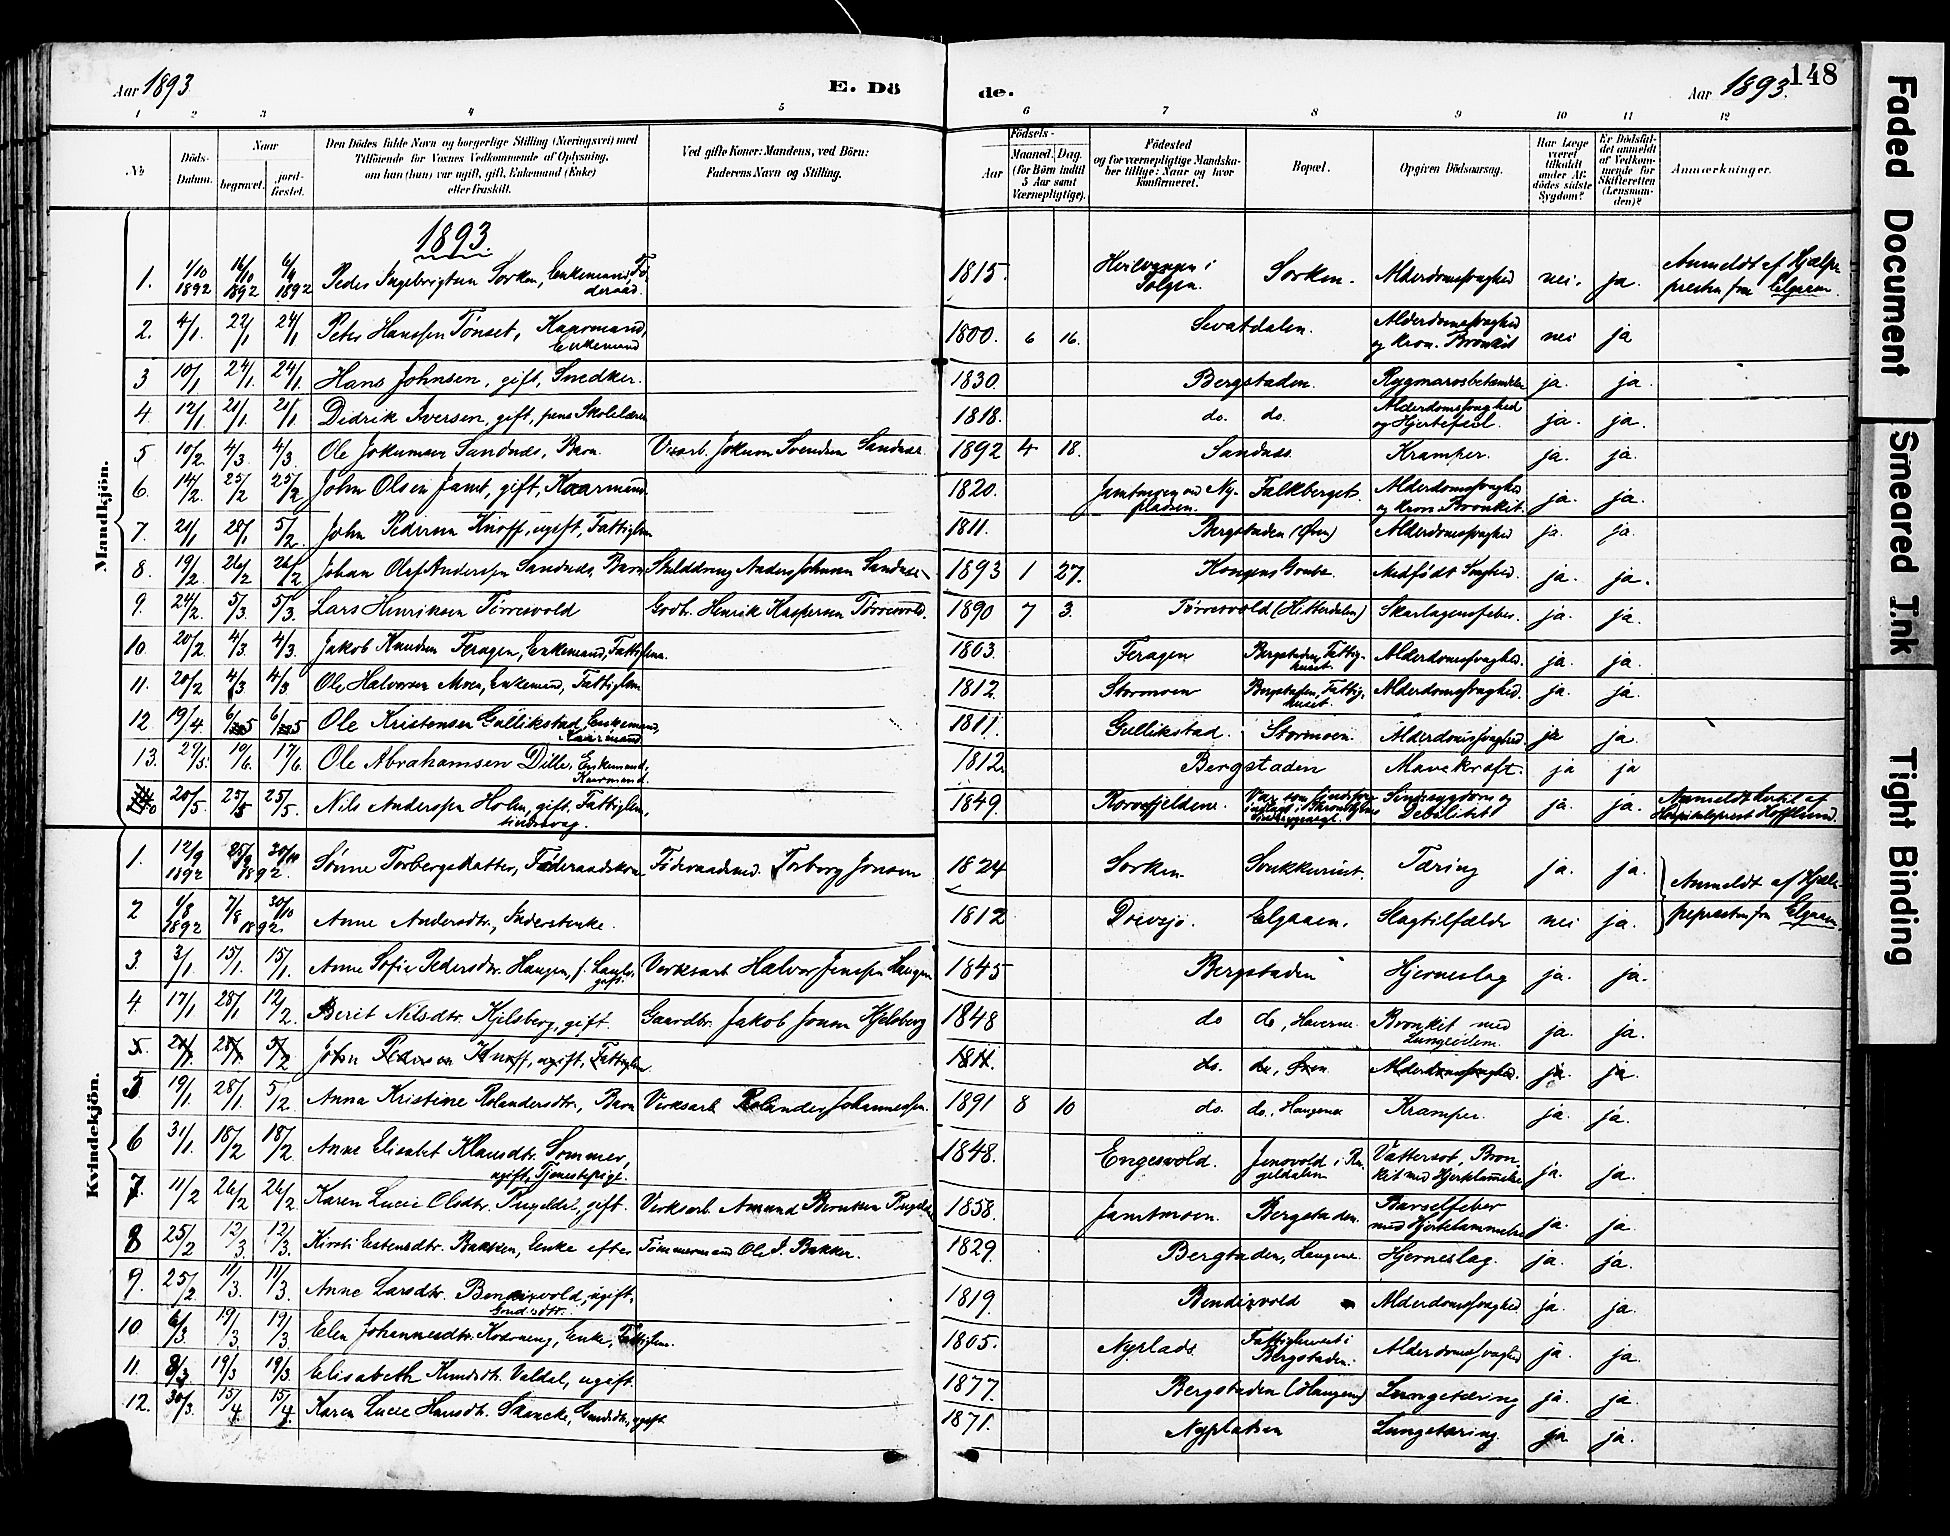 Aar 1893. E. Dö
1 2 3 4 5
№ Döds-Datum. Naar begravet. jordfæstet. Den Dödes fulde Navn og borgerlige Stilling (Næringsvei) med Tilföiende for Voxnes Vedkommende af Oplysning, om han (hun) var ugift, gift, Enkemand (Enke) eller fraskilt. Ved gifte Koner: Mandens, ved Börn: Faderens Navn og Stilling.
Mandkjön.
1893.
1. 1/10 1892 16/10 1892 1892 Peder Ingebrigtsen Sorken, Enkemand, Föderaad.
2. 4/1. 22/1 24/1 Peter Hanssen Tönset, Kaarmand, Enkemand
3 10/1 24/1. 24/1. Hans Johnsen, gift, Snedker.
4 12/1 21/1. 21/1 Didrik Iversen, gift, pens. Skolelærer
5 10/2. 4/3 4/3. Ole Jokumsen Sandnes, Barn. Verksarb. Jokum Svendsen Sandnes.
6. 14/2. 25/2 25/2 John Olsen Jamt, gift, Kaarmand.
7. 21/1 28/1 5/2. John Pedersen Knoff, ugift, Fattiglem
8. 19/2. 26/2 26/2 Johan Olaf Anderssen Sandnes, Barn Anders Johnsen Sandnes.
9. 24/2. 5/3. 5/3. Lars Henriksen Törresvold Gbr. Henrik Kaspersen Törresvold.
10. 20/2 4/3. 4/3. Jakob Knudsen Feragen, Enkemand, Fattiglem.
11. 20/2 4/3 4/3 Ole Halvorsen Moen, Enkemand, Fattiglem
12. 19/4. 6/5 6/5 Ole Kristensen Gullikstad, Enkemand, Kaarmand.
13. 27/5. 19/6. 17/6. Ole Abrahamsen Dille, Enkemand, Kaarmand.
20/5 25/5 25/5. Nils Anderssen Holm, gift, Fattiglem, sindssvag.
Kvindekjön.
1. 12/9 1892 25/9 1892. Sönne Torbergsdatter, Föderaadskone Föderaadsmd. Torberg Jonsen
2 1/8 1892 7/8 30/10 1892. Anne Andersdtr., Inderstenke.
3. 3/1 15/1. 15/1. Anne Sofie Pedersdtr. Haugen, gift. Verksarb. Halvor Jenssen Haugen
4. 17/1 28/1 12/2. Berit Nilsdtr. Kjelsberg, gift. Gaardbr. Jakob Jonsen Kjelsberg
5. 21/1. 28/1. 5/2 John Pedersen Knoff, ugift, Fattiglem
5 19/1 28/1. 5/2. Anna Kristine Rolandersdtr., Barn Verksarb. Rolander Johannessen.
6 31/1. 18/2 18/2. Anne Elisabet Klausdtr. Sommer, ugift, Tjenestepige.
7. 11/2 26/2 26/2 Karen Lucie Olsdtr. Rugeldal, gift. Verksarb. Amund Berntsen Rugeldal
8 25/2 12/3 12/3. Kirsti Estensdtr. Bakken, Enke efter Tömmermand Ole J. Bakken.
9. 25/2 11/3. 11/3. Anne Larsdtr. Bendixvold, ugift, Gaardsdtr.
10 6/3. 19/3 19/3 Elen Johannesdtr. Kosrneng, Enke, Fattiglem.
11. 8/3. 19/3 19/3. Elisabeth Knudsdtr. Valdal, ugift.
12. 30/3. 15/4 15/4 Karen Lucie Hansdtr. Skancke, Gaardsdtr., ugift.
de. Aar 1893. 148
6 7 8 9 10 11 12
Födsels- Aar Maaned. Dag. (for Börn indtil 5 Aar samt Værnepligtige). Födested og for værnepligtige Mandskaber tillige: Naar og hvor konfirmeret. Bopæl. Opgiven Dödsaarsag. Har Læge været tilkaldt under Afdödes sidste Sygdom? Er Dödsfaldet anmeldt af Vedkommende for Skifteretten (Lensmanden)? Anmærkninger.
1815. Hvilvangen i Tolgen. Sorken. Alderdomssvaghed nei. ja. Anmeldt af Hjælpepresten fra Elgaaen.
1800. 6 16. Sevatdalen. Alderdomssvaghed og kron. Bronkit nei ja
1830. Bergstaden. Rygmarvsbetændelse ja. ja.
1818. do. do. Alderdomssvaghed og Hjertefeil. ja. ja.
1892 4 18. Sandnes. Kramper. ja. ja.
1820. Jamtmoen ved Nypladsen. Falkberget. Alderdomssvaghed og kron. Bronkit. ja. ja.
1811. Bergstaden (Ören) Alderdomssvaghed ja. ja.
1893 1 27. Kongens Grube. Medfödt Svaghed. ja. ja.
1890 7 3. Törresvold (Hitterdalen) Skarlagensfeber. ja. ja.
1803. Feragen Bergstaden, Fattighuset. Alderdomssvaghed. ja. ja.
1812. Stormoen Bergstaden, Fattighuset. Alderdomssvaghed. ja. ja.
1811. Gullikstad. Stormoen. Alderdomssvaghed. ja ja
1812. Bergstaden Mavekræft. ja ja
1849. Rorosfjeldene. Sindssygdom og Debilitet ja. ja. Anmeldt hertil af Hospitalsprest Hofflund.
1824 Sorken Sönkkerud. Tæring ja. ja. Anmeldt af Hjælpepresten fra Elgaaen.
1812 Drevsjö. Elgaaen. Slagtilfælde nei ja.
1845 Bergstaden Hjerneslag ja. ja.
1848 do do, Haverne Bronkit med Lungeödem. ja. ja.
1811. do. do, Ören Alderdomssvaghed. ja ja
1891 8 10 do. do, Haugene Kramper. ja. ja.
1848. Engesvold. Jensvold i Rugeldalen Vattersot, Bronkit med Hjertelammelse ja. ja.
1858. Jamtmoen. Bergstaden. Barselfeber med Hjertelammelse ja. ja.
1829. Bergstaden, Haugene. Hjerneslag. ja. ja.
1819. Bendixvold Alderdomssvaghed ja. ja.
1805. Nyplads Fattighuset i Bergstaden. Alderdomssvaghed ja. ja.
1877. Bergstaden (Haugene) Lungetæring ja. ja.
1871. Nypladsen Lungetæring. ja ja.
Faded Document
Smeared Ink
Tight Binding